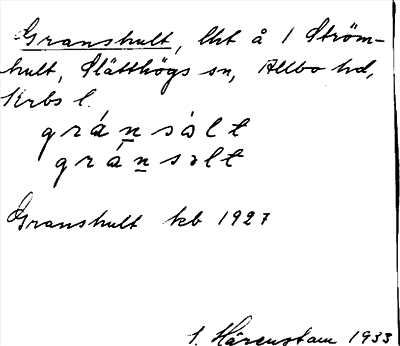 Granshult, lht å 1 Ström-
hult, Slätthögs sn, Allbo hd,
Krbs l.
grán̲sə̀lt
grán̲səlt
Granshult kb 1927
S. Hårenstam 1933